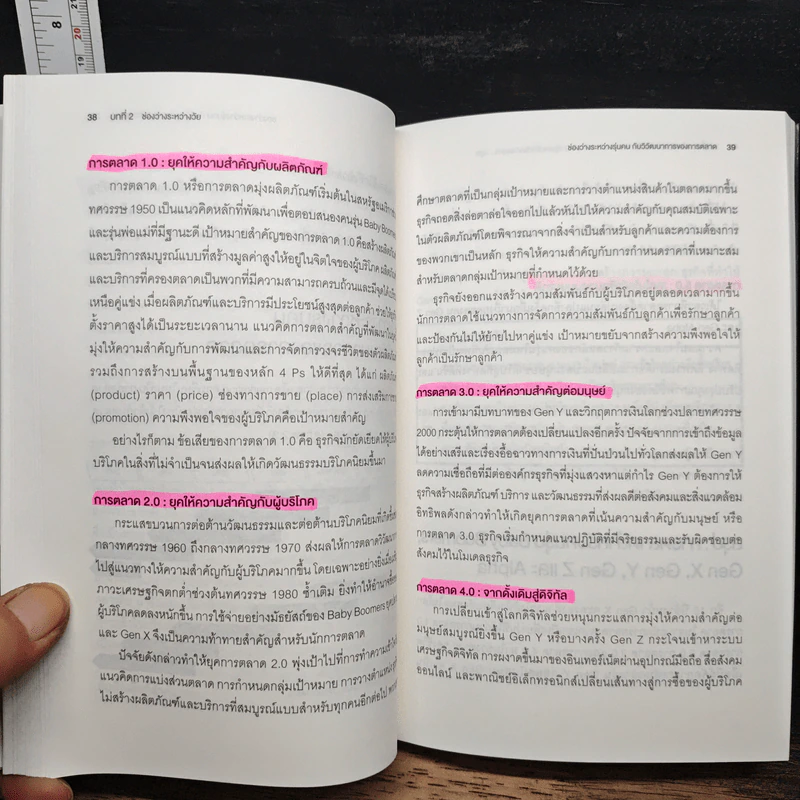 8
20
19
38 บทที่ 2 ช่องว่างระหว่างวัย
การตลาด 1.0 : ยุคให้ความสำคัญกับผลิตภัณฑ์
การตลาด 1.0 หรือการตลาดมุ่งผลิตภัณฑ์เริ่มต้นในสหรัฐอเมริกา
ทศวรรษ 1950 เป็นแนวคิดหลักที่พัฒนาเพื่อตอบสนองคนรุ่น Baby Boomers
และรุ่นพ่อแม่ที่มีฐานะดี เป้าหมายสำคัญของการตลาด 1.0 คือสร้างผลิตภัณฑ์
และบริการสมบูรณ์แบบที่สร้างมูลค่าสูงให้อยู่ในจิตใจของผู้บริโภค ผลิตภัณฑ์
และบริการที่ครองตลาดเป็นพวกที่มีความสามารถครบถ้วนและมีจุดได้เปรียบ
เหนือคู่แข่ง เมื่อผลิตภัณฑ์และบริการมีประโยชน์สูงสุดต่อลูกค้า ช่วยให้ธุรกิจ
ตั้งราคาสูงได้เป็นระยะเวลานาน แนวคิดการตลาดสำคัญที่พัฒนาในยุค
มุ่งให้ความสำคัญกับการพัฒนาและการจัดการวงจรชีวิตของตัวผลิตภัณฑ์
รวมถึงการสร้างบนพื้นฐานของหลัก 4 Ps ให้ดีที่สุด ได้แก่ ผลิตภัณฑ์
(product) ราคา (price) ช่องทางการขาย (place) การส่งเสริมการขาย
(promotion) ความพึงพอใจของผู้บริโภคคือเป้าหมายสำคัญ
อย่างไรก็ตาม ข้อเสียของการตลาด 1.0 คือ ธุรกิจมักยัดเยียดให้ผู้บริโภค
บริโภคในสิ่งที่ไม่จำเป็นจนส่งผลให้เกิดวัฒนธรรมบริโภคนิยมขึ้นมา
การตลาด 2.0 : ยุคให้ความสำคัญกับผู้บริโภค
กระแสขบวนการต่อต้านวัฒนธรรมและต่อต้านบริโภคนิยมที่เกิดขึ้น
กลางทศวรรษ 1960 ถึงกลางทศวรรษ 1970 ส่งผลให้การตลาดวิวัฒนาการ
ไปสู่แนวทางให้ความสำคัญกับผู้บริโภคมากขึ้น โดยเฉพาะอย่างยิ่งเมื่อเกิด
ภาวะเศรษฐกิจตกต่ำช่วงต้นทศวรรษ 1980 ซ้ำเติม ยิ่งทำให้อำนาจซื้อของ
ผู้บริโภคลดลงหนักขึ้น การใช้จ่ายอย่างมัธยัสถ์ของ Baby Boomers
และ Gen X จึงเป็นความท้าทายสำคัญสำหรับนักการตลาด
ปัจจัยดังกล่าวทำให้ยุคการตลาด 2.0 พุ่งเป้าไปที่การทำความเข้าใจ
แนวคิดการแบ่งส่วนตลาด การกำหนดกลุ่มเป้าหมาย การวางตำแหน่ง
ไม่สร้างผลิตภัณฑ์และบริการที่สมบูรณ์แบบสำหรับทุกคนอีกต่อไป
ช่องว่างระหว่างรุ่นคน กับวิวัฒนาการของการตลาด 39
ศึกษาตลาดที่เป็นกลุ่มเป้าหมายและการวางตำแหน่งสินค้าในตลาดมากขึ้น
ธุรกิจถอดสิ่งล่อตาล่อใจออกไปแล้วหันไปให้ความสำคัญกับคุณสมบัติเฉพาะ
ในตัวผลิตภัณฑ์โดยพิจารณาจากสิ่งจำเป็นสำหรับลูกค้าและความต้องการ
ของพวกเขาเป็นหลัก ธุรกิจให้ความสำคัญกับการกำหนดราคาที่เหมาะสม
สำหรับตลาดกลุ่มเป้าหมายที่กำหนดไว้ด้วย
ธุรกิจยังออกแรงสร้างความสัมพันธ์กับผู้บริโภคอยู่ตลอดเวลามากขึ้น
นักการตลาดใช้แนวทางการจัดการความสัมพันธ์กับลูกค้าเพื่อรักษาลูกค้า
และป้องกันไม่ให้ย้ายไปหาคู่แข่ง เป้าหมายขยับจากสร้างความพึงพอใจให้
ลูกค้าเป็นรักษาลูกค้า
การตลาด 3.0 : ยุคให้ความสำคัญต่อมนุษย์
การเข้ามามีบทบาทของ Gen Y และวิกฤตการเงินโลกช่วงปลายทศวรรษ
2000 กระตุ้นให้การตลาดต้องเปลี่ยนแปลงอีกครั้ง ปัจจัยจากการเข้าถึงข้อมูล
ได้อย่างเสรีและเรื่องอื้อฉาวทางการเงินที่ปั่นป่วนไปทั่วโลกส่งผลให้ Gen Y
ลดความเชื่อถือที่มีต่อองค์กรธุรกิจที่มุ่งแสวงหาแต่กำไร Gen Y ต้องการให้
ธุรกิจสร้างผลิตภัณฑ์ บริการ และวัฒนธรรมที่ส่งผลดีต่อสังคมและสิ่งแวดล้อม
อิทธิพลดังกล่าวทำให้เกิดยุคการตลาดที่เน้นความสำคัญกับมนุษย์ หรือ
การตลาด 3.0 ธุรกิจเริ่มกำหนดแนวปฏิบัติที่มีจริยธรรมและรับผิดชอบต่อ
สังคมไว้ในโมเดลธุรกิจ
การตลาด 4.0 : จากดั้งเดิมสู่ดิจิทัล
การเปลี่ยนเข้าสู่โลกดิจิทัลช่วยหนุนกระแสการมุ่งให้ความสำคัญต่อ
มนุษย์สมบูรณ์ยิ่งขึ้น Gen Y หรือบางครั้ง Gen Z กระโจนเข้าหาระบบ
เศรษฐกิจดิจิทัล การผงาดขึ้นมาของอินเทอร์เน็ตผ่านอุปกรณ์มือถือ สื่อสังคม
ออนไลน์ และพาณิชย์อิเล็กทรอนิกส์เปลี่ยนเส้นทางสู่การซื้อของผู้บริโภค